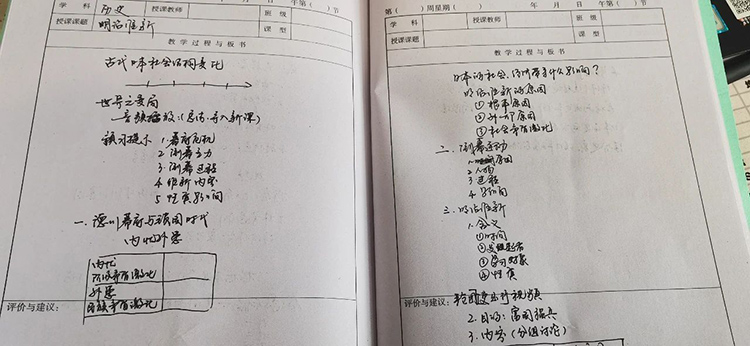 学 科 历史 授课教师 班 级
授课课题 明治维新 课 型
年 月 日 午第( )节
教 学 过 程 与 板 书
古代日本社会结构变化
世界之变局
音频播放:(启法、导入新课)
预习提示 1.幕府危机
2.倒幕主力
3.倒幕过程
4.维新内容
5.性质影响
一、德川幕府与锁国时代
内忧外患
内忧
阶级矛盾激化
外患
民族矛盾激化
评价与建议:
第( )周星期( ) 年 月 日 午第( )节
学 科 授课教师 班 级
授课课题 课 型
教 学 过 程 与 板 书
日本的社会、经济带来什么影响?
明治维新的原因
①根本原因
②外部原因
③社会矛盾激化
二、倒幕运动
1.原因
2.人物
3.过程
4.影响
三、明治维新
1.含义
①时间
②发起者
③学习对象
④性质
评价与建议:
2.目的:富国强兵
3.内容(分组讨论)